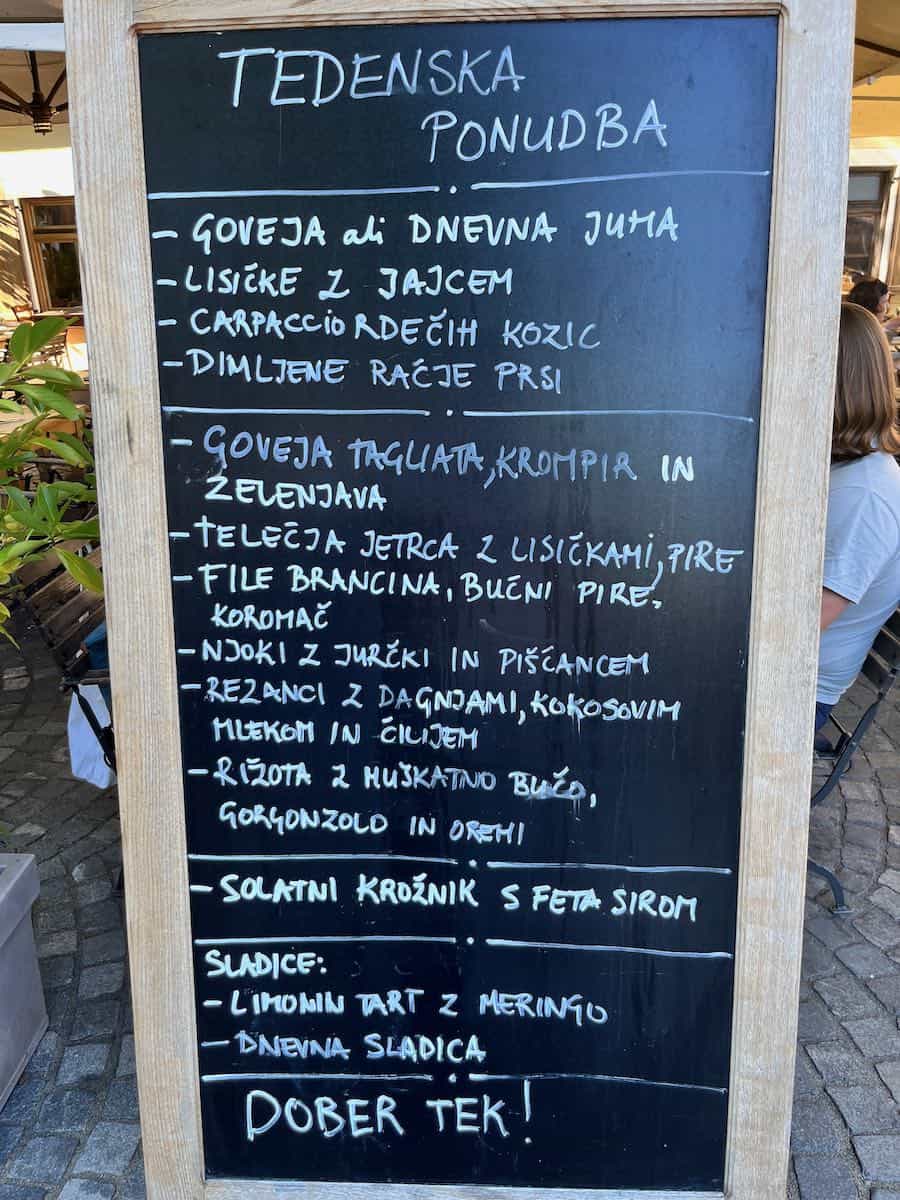 TEDENSKA
PONUDBA
- GOVEJA ali DNEVNA JUHA
- LISIČKE Z JAJCEM
- CARPACCIO RDEČIH KOZIC
- DIMLJENE RAČJE PRSI
- GOVEJA TAGLIATA, KROMPIR IN
ZELENJAVA
- TELEČJA JETRCA Z LISIČKAMI, PIRE
- FILE BRANCINA, BUČNI PIRE,
KOROMAČ
- NJOKI Z JURČKI IN PIŠČANCEM
- REZANCI Z DAGNJAMI, KOKOSOVIM
MLEKOM IN ČILIJEM
- RIŽOTA Z MUŠKATNO BUČO,
GORGONZOLO IN OREHI
- SOLATNI KROŽNIK S FETA SIROM
SLADICE:
- LIMONIN TART Z MERINGO
- DNEVNA SLADICA
DOBER TEK!